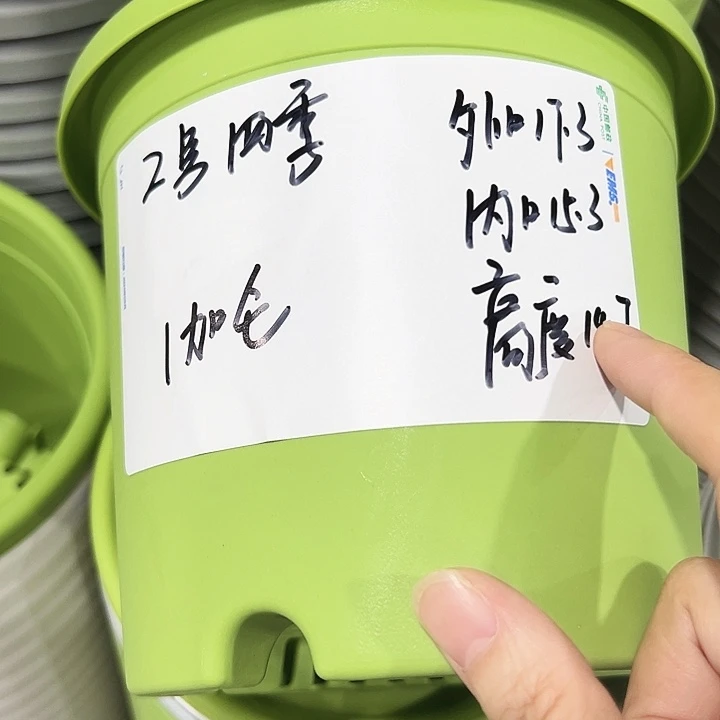 2号四季
1加仑
外口17.3
内口15.3
高度
中国邮政
EMS